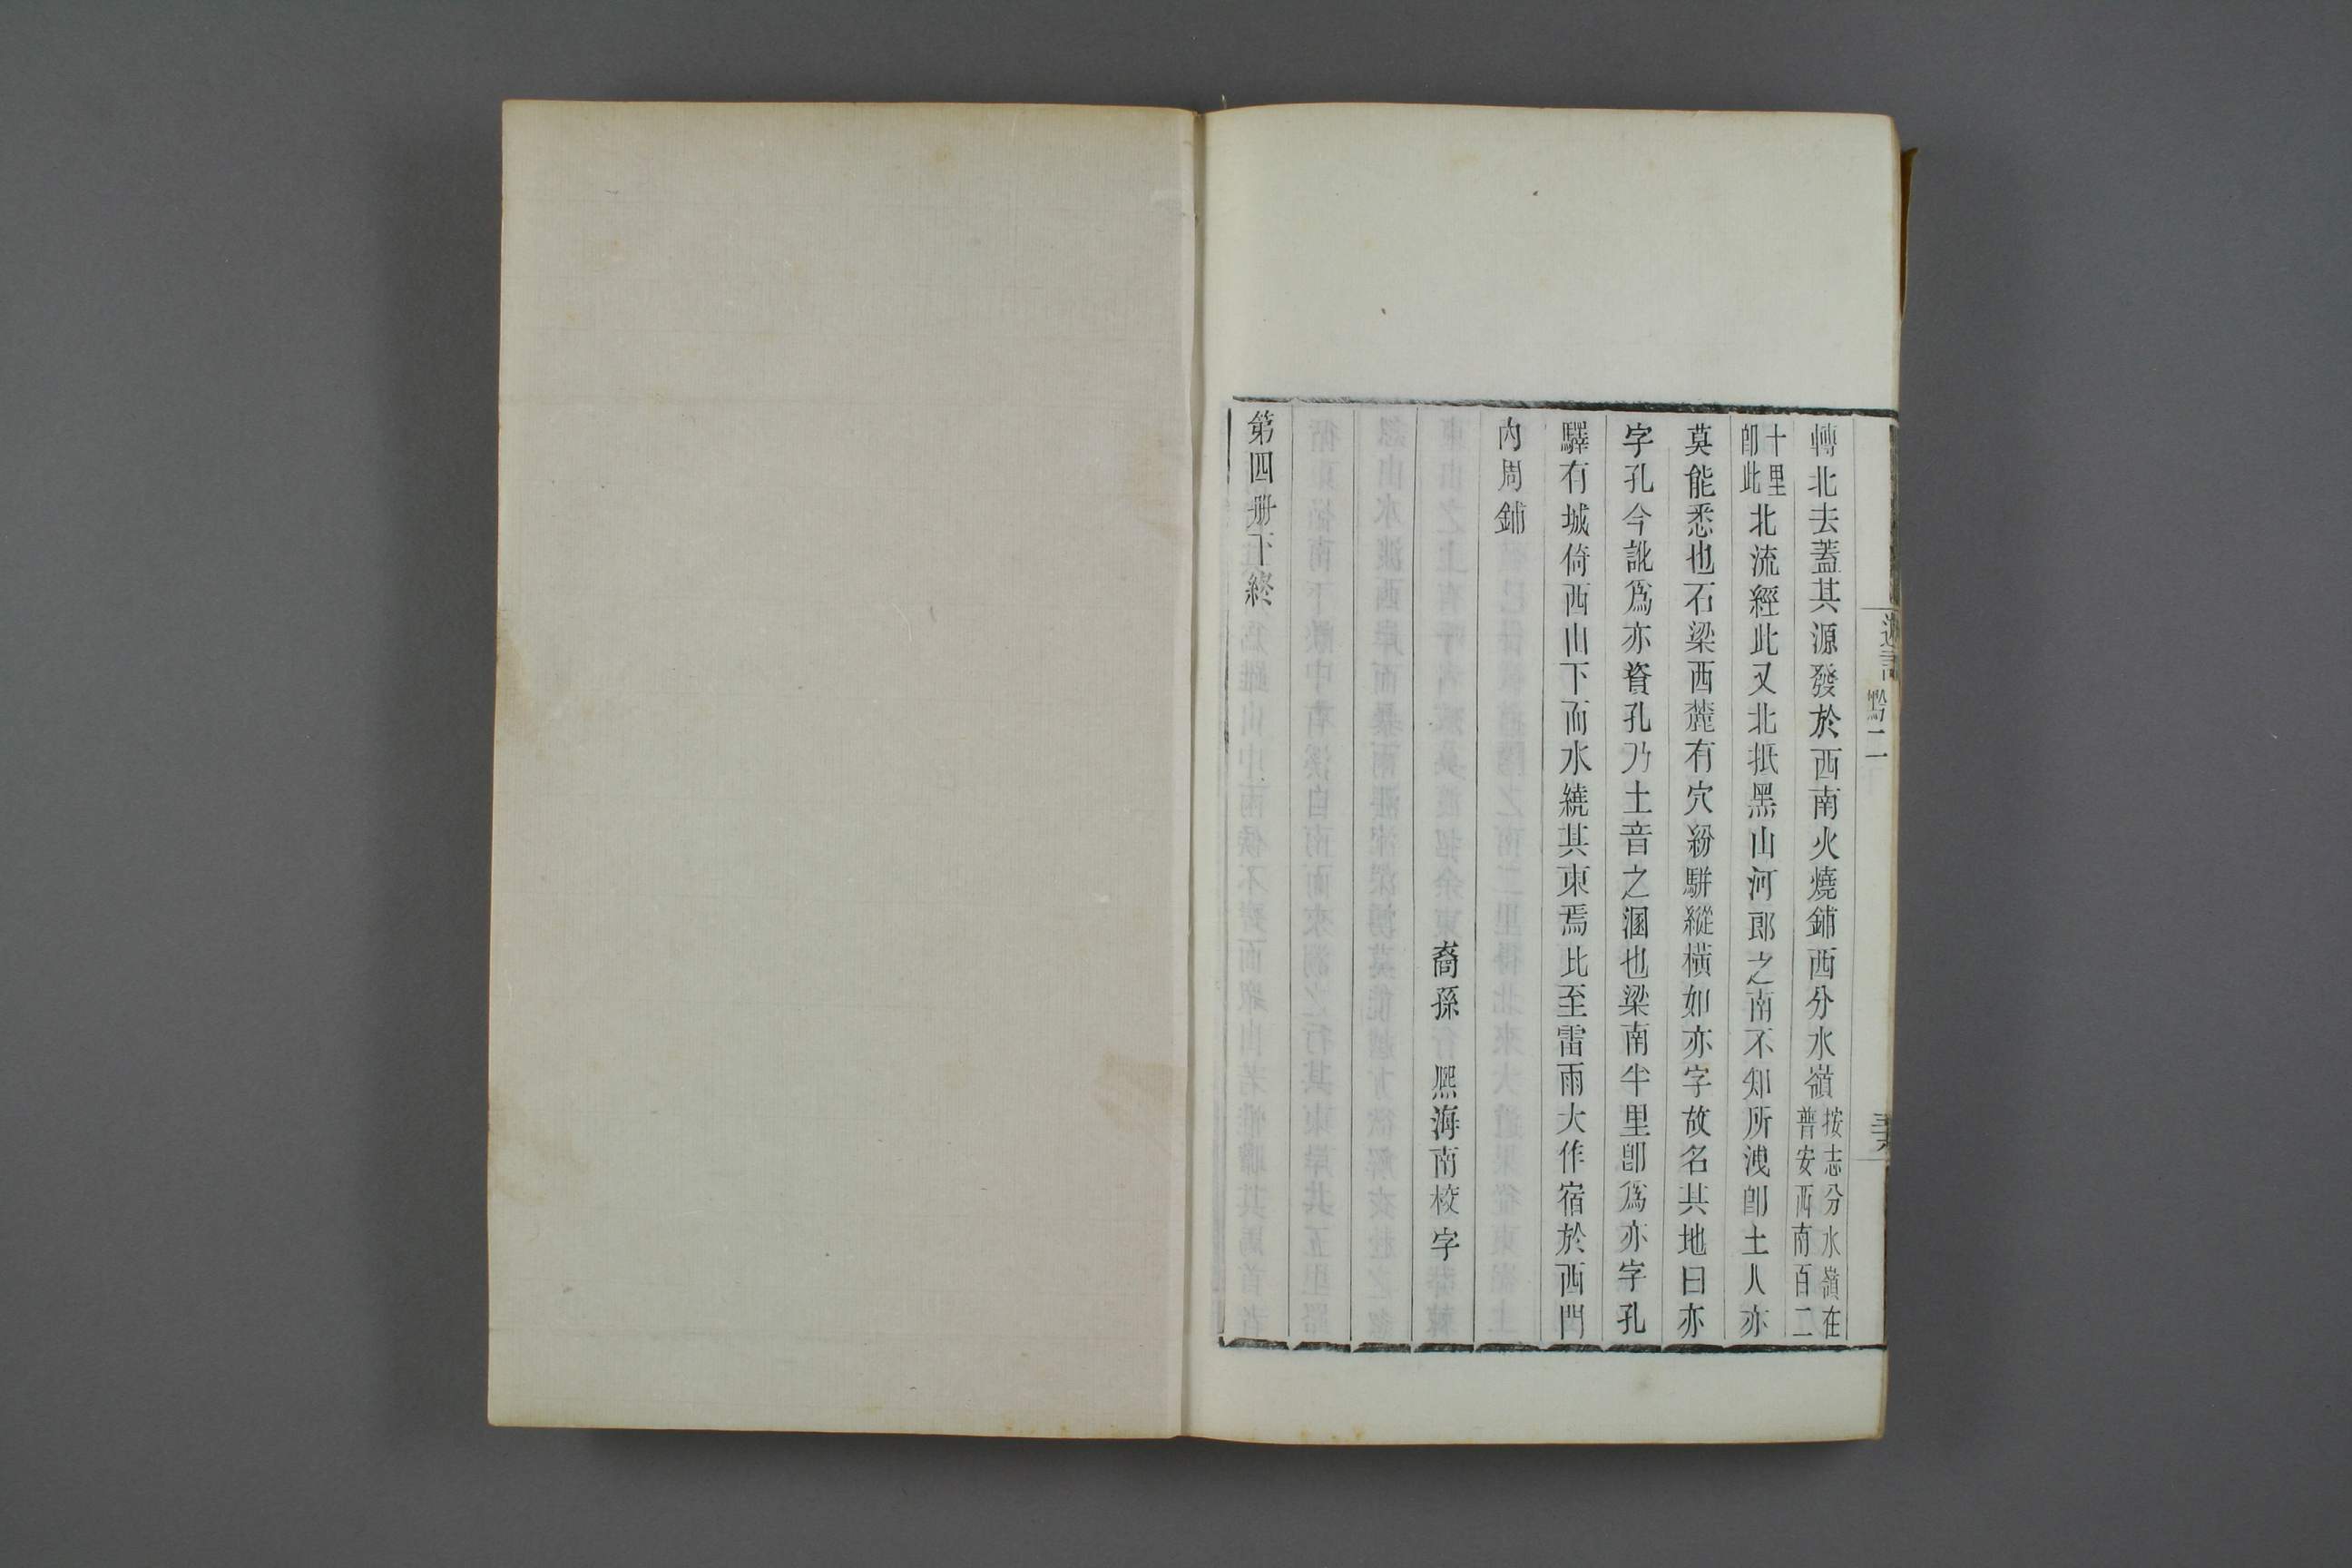 轉北去蓋其源發於西南火燒鋪西分水嶺按志分水嶺在普安西南百二
十里卽此北流經此又北抵黑山河郎之南不知所洩卽土人亦
莫能悉也石梁西麓有穴紛駢縱橫如亦字故名其地曰亦
字孔今訛爲亦資孔乃土音之溷也梁南半里卽爲亦字孔
驛有城倚西山下而水繞其東焉比至雷雨大作宿於西門
內周鋪
裔孫 熙海南校字
第四册下終
遊記 黔二